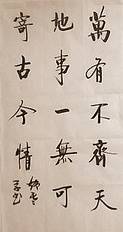 萬有不齊天
地事一無可
寄古今情